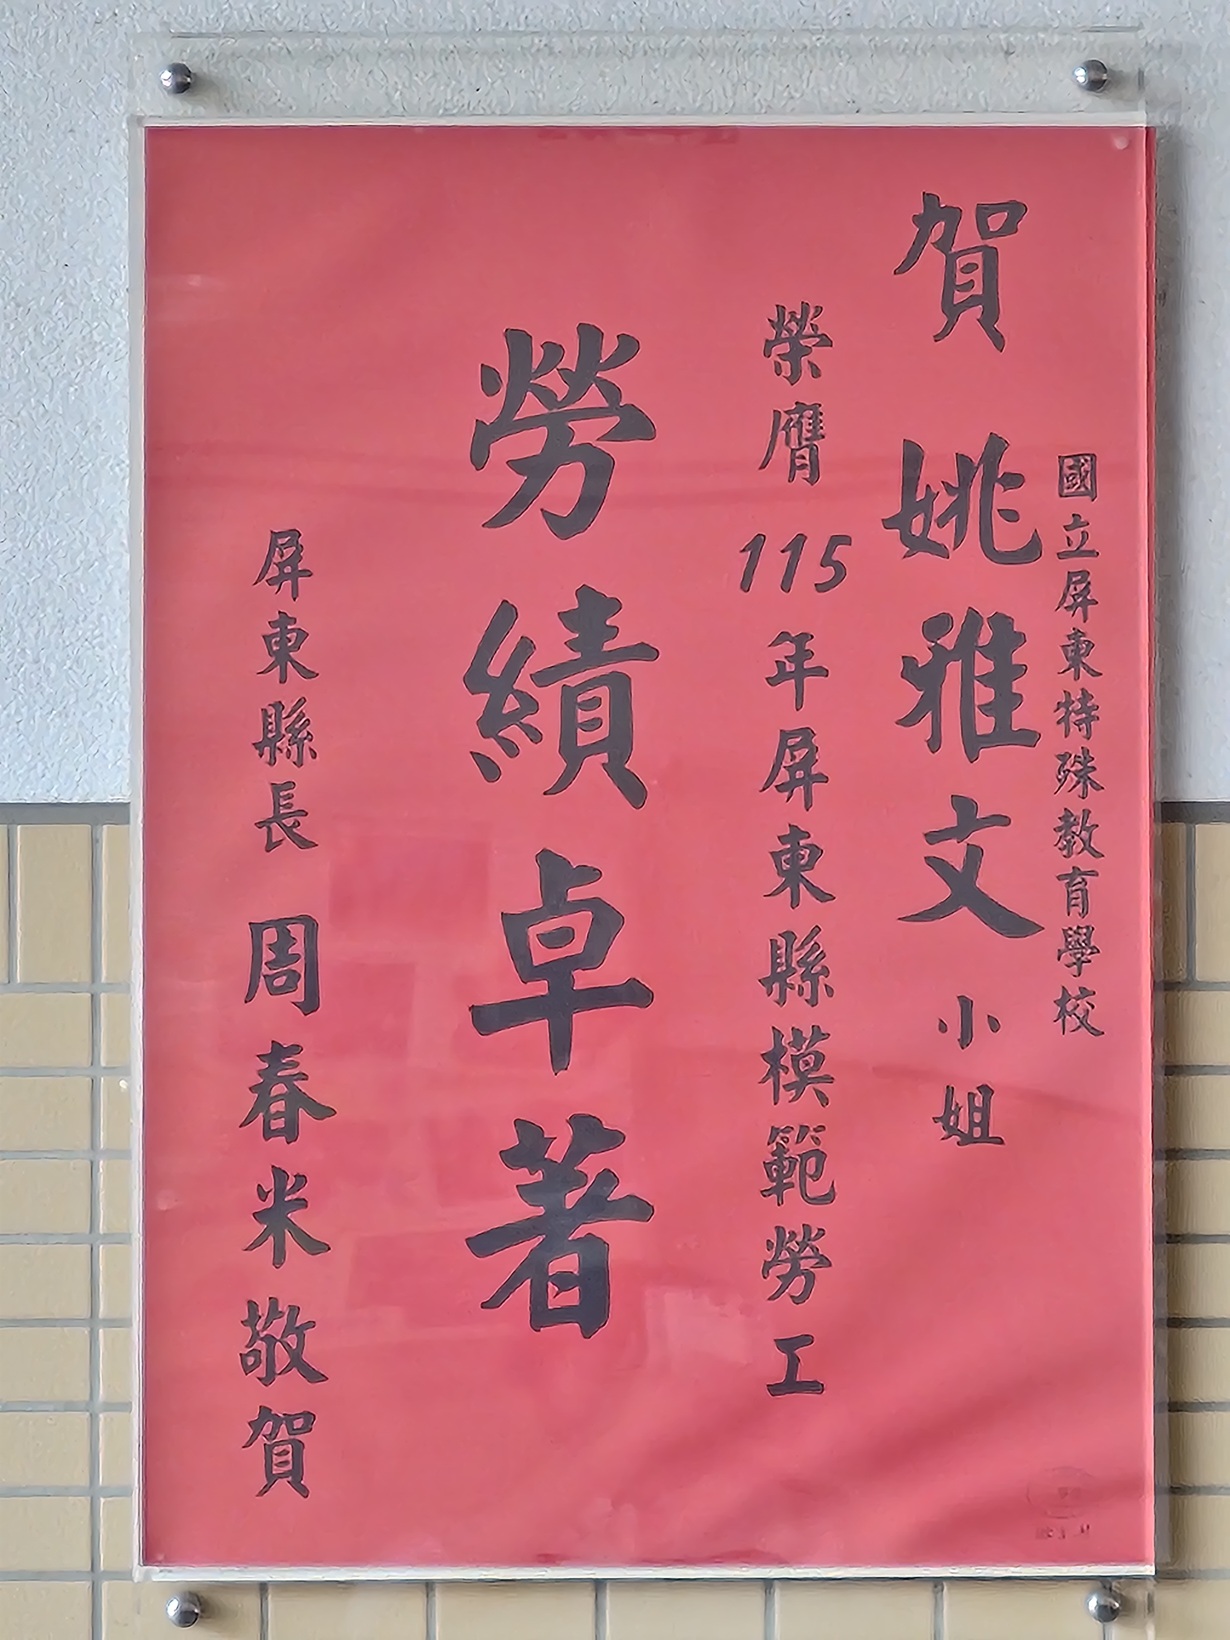 賀
國立屏東特殊教育學校
姚雅文小姐
榮膺115年屏東縣模範勞工
勞績卓著
屏東縣長 周春米 敬賀